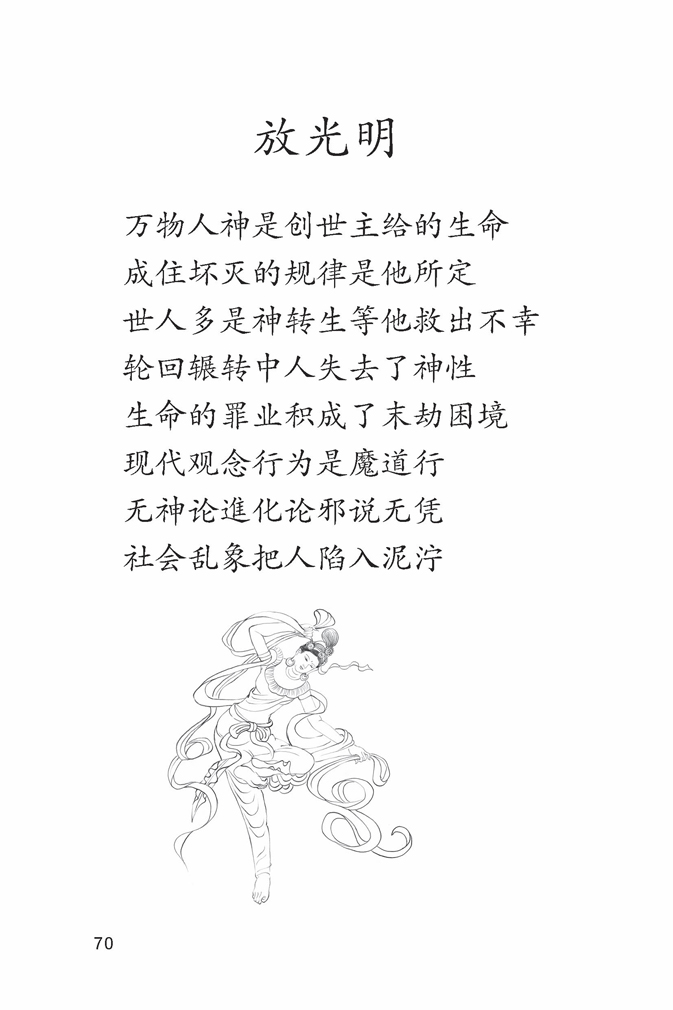 放光明
万物人神是创世主给的生命
成住坏灭的规律是他所定
世人多是神转生等他救出不幸
轮回辗转中人失去了神性
生命的罪业积成了末劫困境
现代观念行为是魔道行
无神论進化论邪说无凭
社会乱象把人陷入泥泞
70